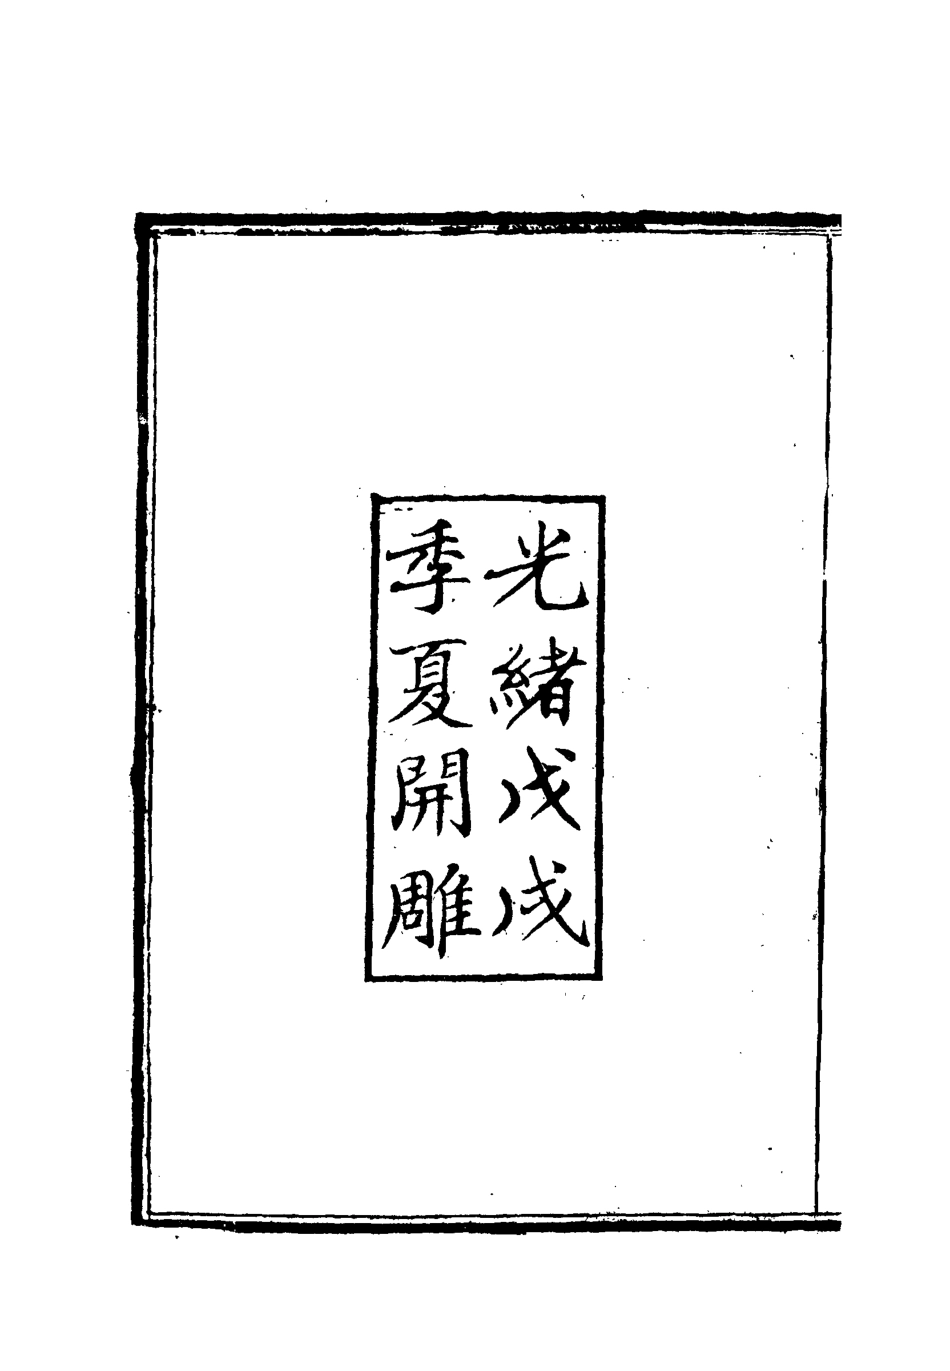 光緒戊戌
季夏開雕